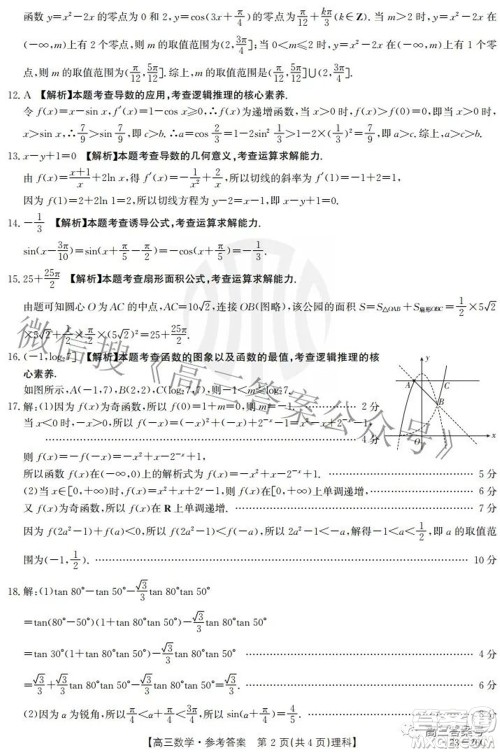 函数 y=x²-2x 的零点为 0 和 2,y=cos(3x+π/4)的零点为π/12+kπ/3(k∈Z). 当 m>2 时,y=x²-2x 在
(-∞,m)上有 2 个零点,则 m 的取值范围为(2,3π/4];当 0<m≤2 时,y=x²-2x 在(-∞,m)上有 1 个零
点,则 m 的取值范围为(π/12,5π/12]. 综上,m 的取值范围是(π/12,5π/12]∪(2,3π/4].
12. A 【解析】本题考查导数的应用,考查逻辑推理的核心素养.
令 f(x)=x-sin x,f′(x)=1-cos x≥0,∴f(x)为递增函数,当 x>0 时,f(x)>f(0)=0,即当 x>0 时,
x>sin x,∴7/9>sin 7/9,即 c>b. ∴a=cos 2/3=1-2sin² 1/3>1-2×(1/3)²=7/9,即 a>c. 综上,a>c>b.
13. x-y+1=0 【解析】本题考查导数的几何意义,考查运算求解能力.
由 f(x)=(x+1)/x+2ln x,得 f′(x)=-1/x²+2/x,所以切线的斜率为 f′(1)=-1+2=1,
因为 f(1)=2+2ln 1=2,所以切线方程为 y-2=x-1,即 x-y+1=0.
14. -1/3 【解析】本题考查诱导公式,考查运算求解能力.
sin(x-3π/10)=sin(x+π/5-π/2)=-cos(x+π/5)=-1/3.
15. 25+25π/2 【解析】本题考查扇形面积公式,考查运算求解能力.
由题可知圆心 O 为 AC 的中点,AC=10√2,连接 OB(图略),该公园的面积 S=S△OAB+S扇形OBC=1/2×5√2
×5√2+1/2×π/2×(5√2)²=25+25π/2.
16. (-1,log₂7] 【解析】本题考查函数的图象以及函数的最值,考查逻辑推理的核
心素养.
如图所示,A(-1,7),B(2,2),C(log₂7,7),则-1<m≤log₂7.
y
A
C
B
O
x
17. 解:(1)因为 f(x)为奇函数,所以 f(0)=1+m=0,则 m=-1. 2 分
当 x<0 时,-x>0,所以 f(-x)=(-x)²+(-x)+2⁻ˣ-1=x²-x+2⁻ˣ-1,
4 分
则 f(x)=-f(-x)=-x²+x-2⁻ˣ+1,
所以函数 f(x)在(-∞,0)上的解析式为 f(x)=-x²+x-2⁻ˣ+1. 5 分
(2)当 x∈[0,+∞)时,f(x)=x²+x+2ˣ-1,则 f(x)在[0,+∞)上单调递增, 6 分
又 f(x)为奇函数,所以 f(x)在 R 上单调递增. 7 分
因为 f(2a²-1)+f(a)<0,所以 f(2a²-1)<f(-a),所以 2a²-1<-a,解得-1<a<1/2,即 a 的取值范
围为(-1,1/2). 10 分
18. 解:(1)tan 80°-tan 50°-√3/3 tan 80°tan 50°
=tan(80°-50°)(1+tan 80°tan 50°)-√3/3 tan 80°tan 50°
=tan 30°(1+tan 80°tan 50°)-√3/3 tan 80°tan 50° 4 分
=√3/3+√3/3 tan 80°tan 50°-√3/3 tan 80°tan 50°=√3/3. 6 分
(2)因为 α 为锐角,所以π/4<α+π/4<3π/4,所以 sin(α+π/4)=4/5.
【高三数学·参考答案 第 2 页(共 4 页)理科】
微信搜《高三答案公众号》
高三答案号